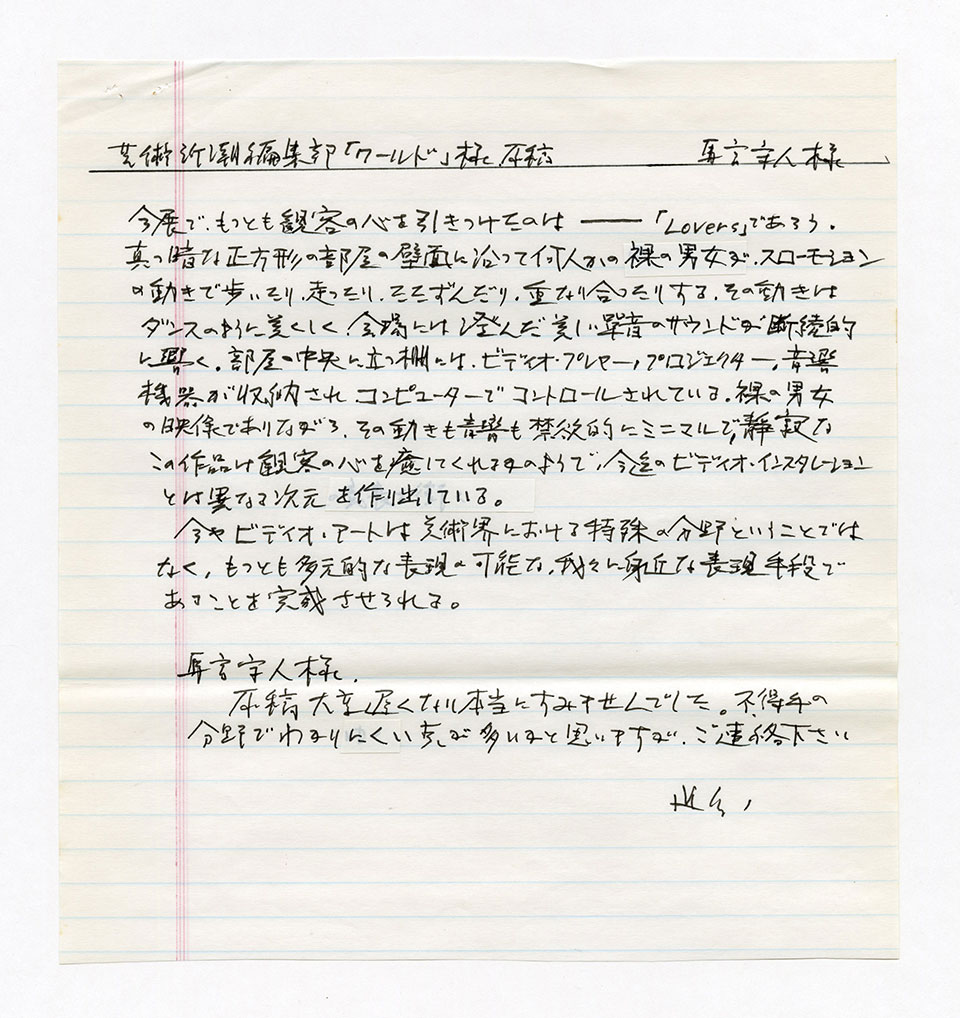 芸術新潮編集部「ワールド」様 原稿
今展で、もっとも観客の心を引きつけたのは ——「Lovers」であろう。
真っ暗な正方形の部屋の壁面に沿って何人かの裸の男女が、スローモーション
の動きで歩いたり、走ったり、たたずんだり、重なり合ったりする。その動きは
ダンスのように美しく、会場には澄んだ美しい単音のサウンドが断続的
に響く。部屋の中央に立つ棚には、ビディオ・プレヤー、プロジェクター、音響
機器が収納されコンピューターでコントロールされている。裸の男女
の映像でありながら、その動きも音響も禁欲的にミニマルで、静寂な
この作品は観客の心を癒してくれるかのようで、今迄のビディオ・インスタレーション
とは異なる次元を作り出している。
今やビディオ・アートは美術界における特殊な分野ということでは
なく、もっとも多元的な表現の可能な、我々に身近な表現手段で
あることを完成させられる。
原稿大変遅くなり本当にすみませんでした。不得手の
分野でわかりにくい点が多いかと思いますが、ご連絡下さい